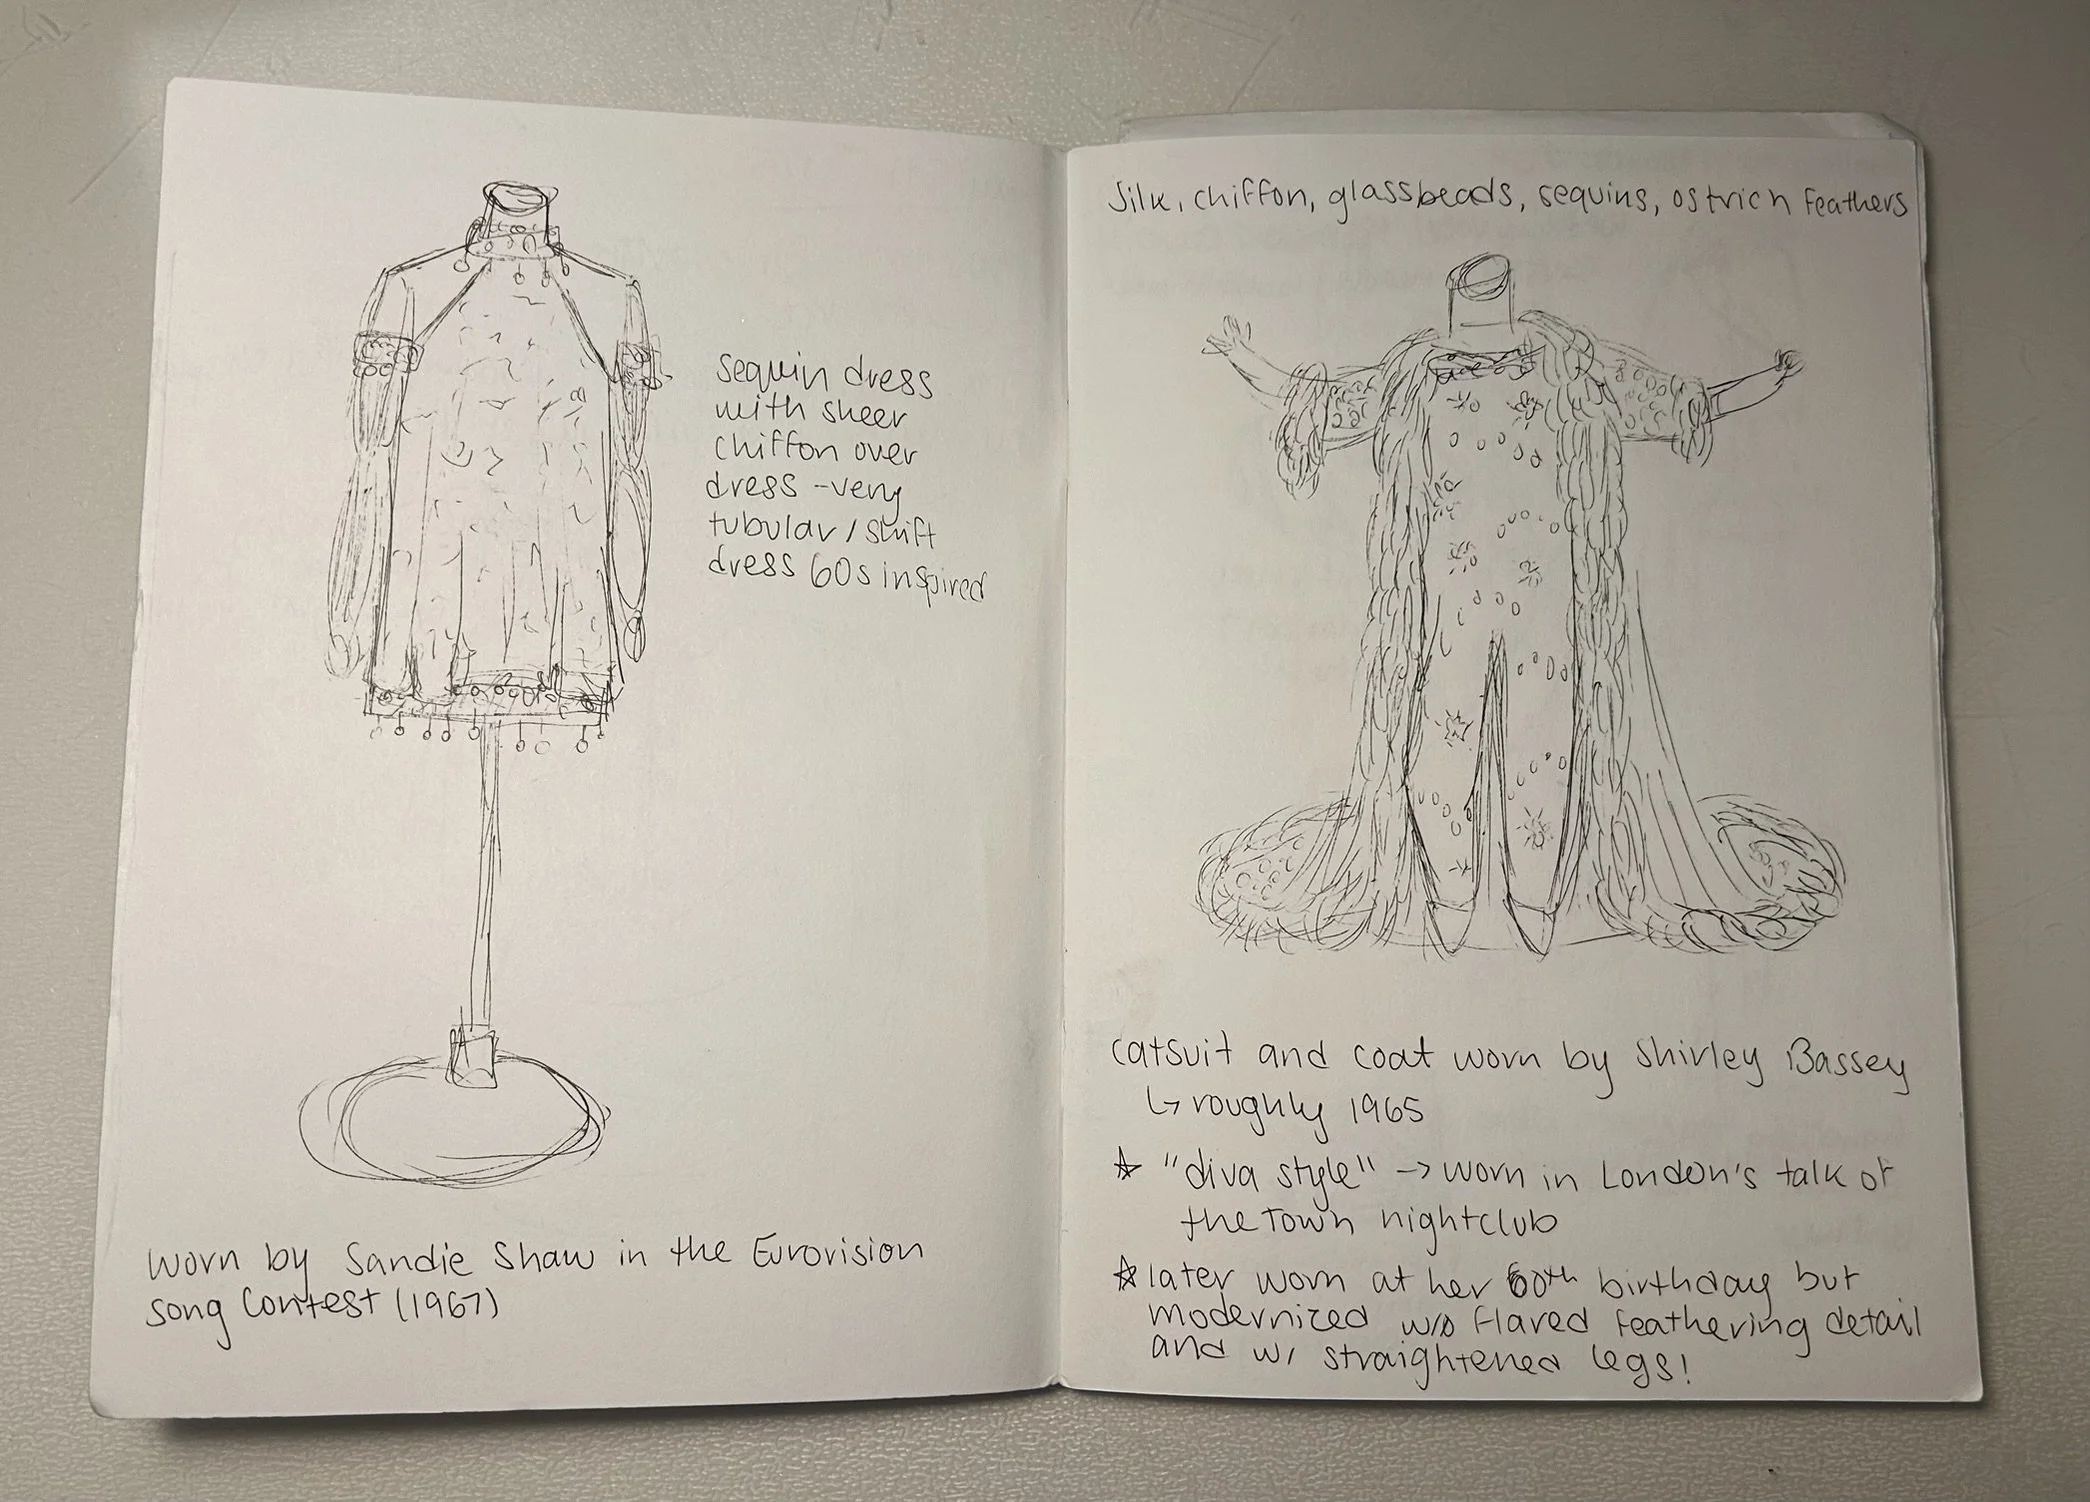 sequin dress
with sheer
chiffon over
dress - very
tubular / shift
dress 60s inspired
worn by Sandie Shaw in the Eurovision
song contest (1967)
Silk, chiffon, glassbeads, sequins, ostrich feathers
catsuit and coat worn by Shirley Bassey
↳ roughly 1965
☆ "diva style" → worn in London's talk of
the Town nightclub
☆ later worn at her 60th birthday but
modernized w/o flared feathering detail
and w/ straightened legs!